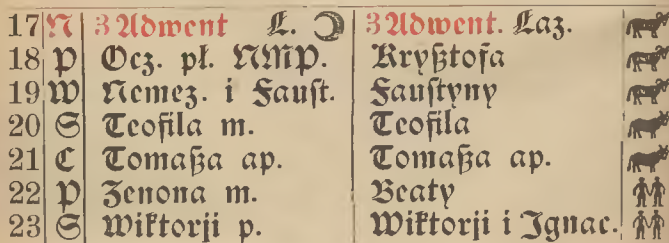 17 N 3 Adwent Ł. ☽ 3 Adwent. Łaz.
18 P Ocz. pł. NMP. Kryßtofa
19 W Nemez. i Fauſt. Fauſtyny
20 S Teofila m. Teofila
21 C Tomaßa ap. Tomaßa ap.
22 P Zenona m. Beaty
23 S Wiktorji p. Wiktorji i Ignac.